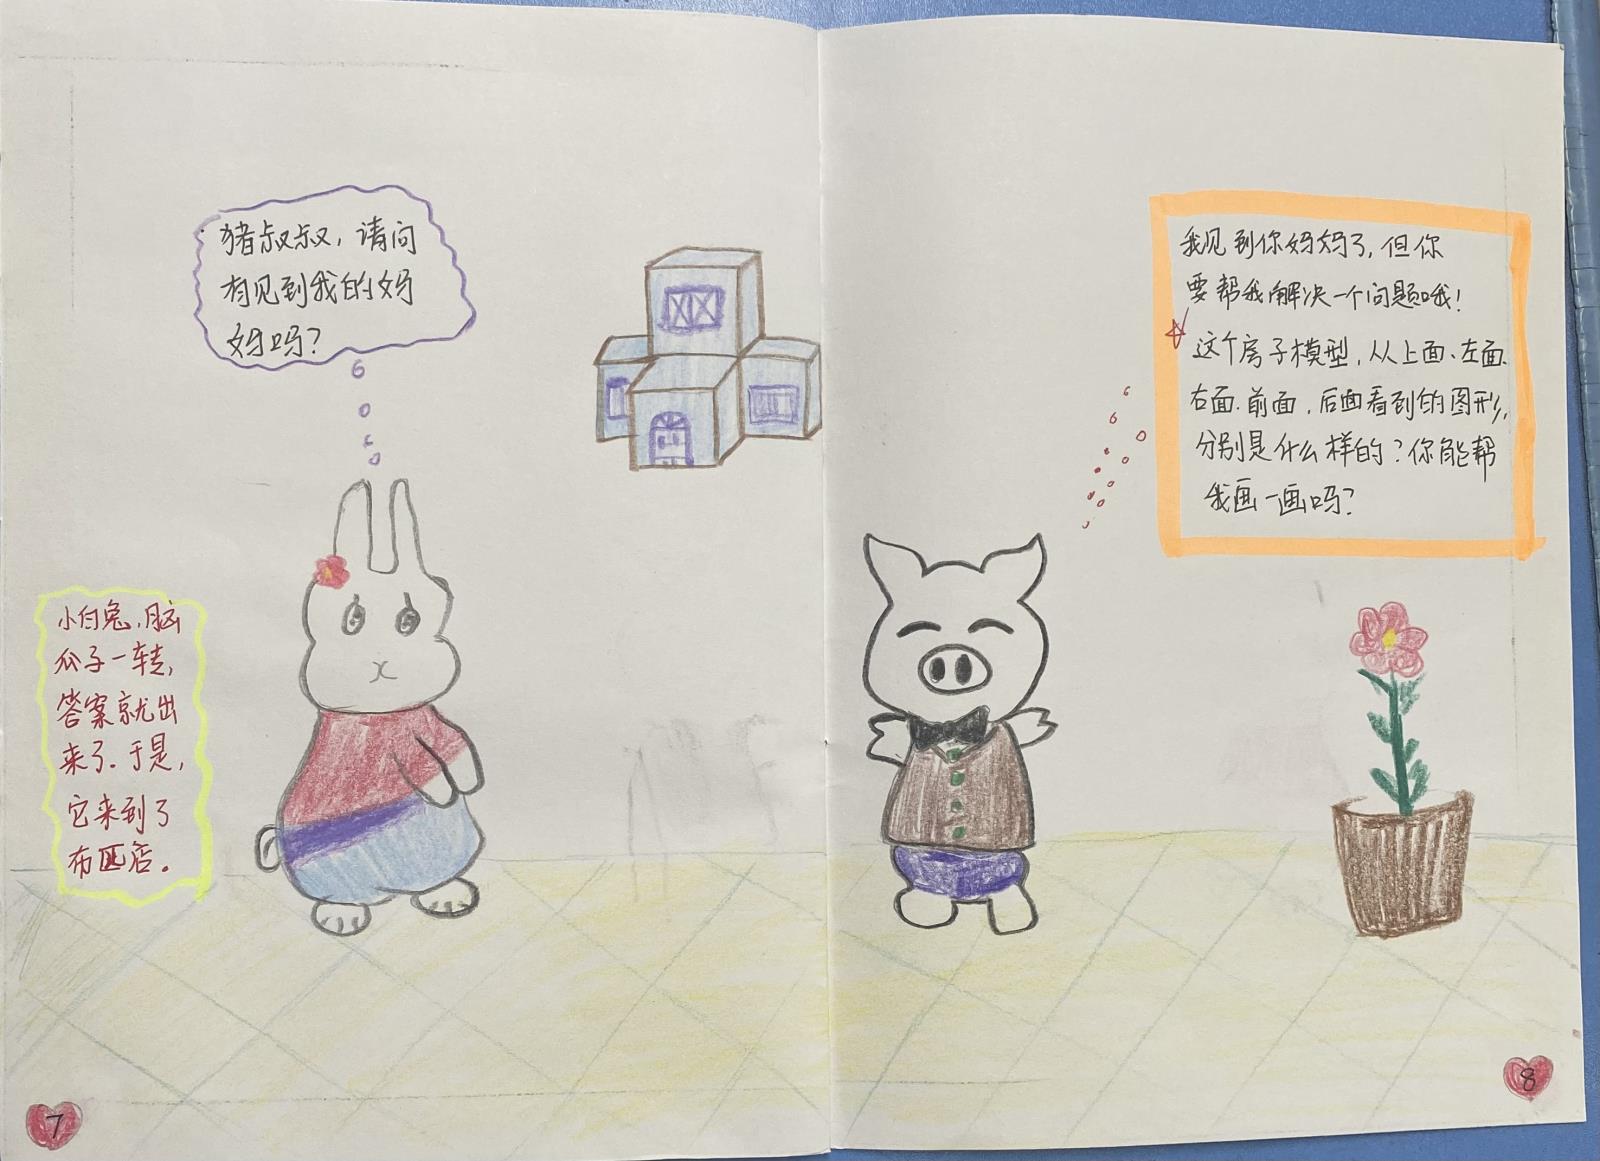 猪叔叔，请问
有见到我的妈
妈吗？
小白兔，脑
瓜子一转，
答案就出
来了.于是，
它来到了
布匹店。
7
我见到你妈妈了,但你
要帮我解决一个问题哦！
这个房子模型，从上面、左面、
右面.前面，后面看到的图形，
分别是什么样的？你能帮
我画一画吗？
8